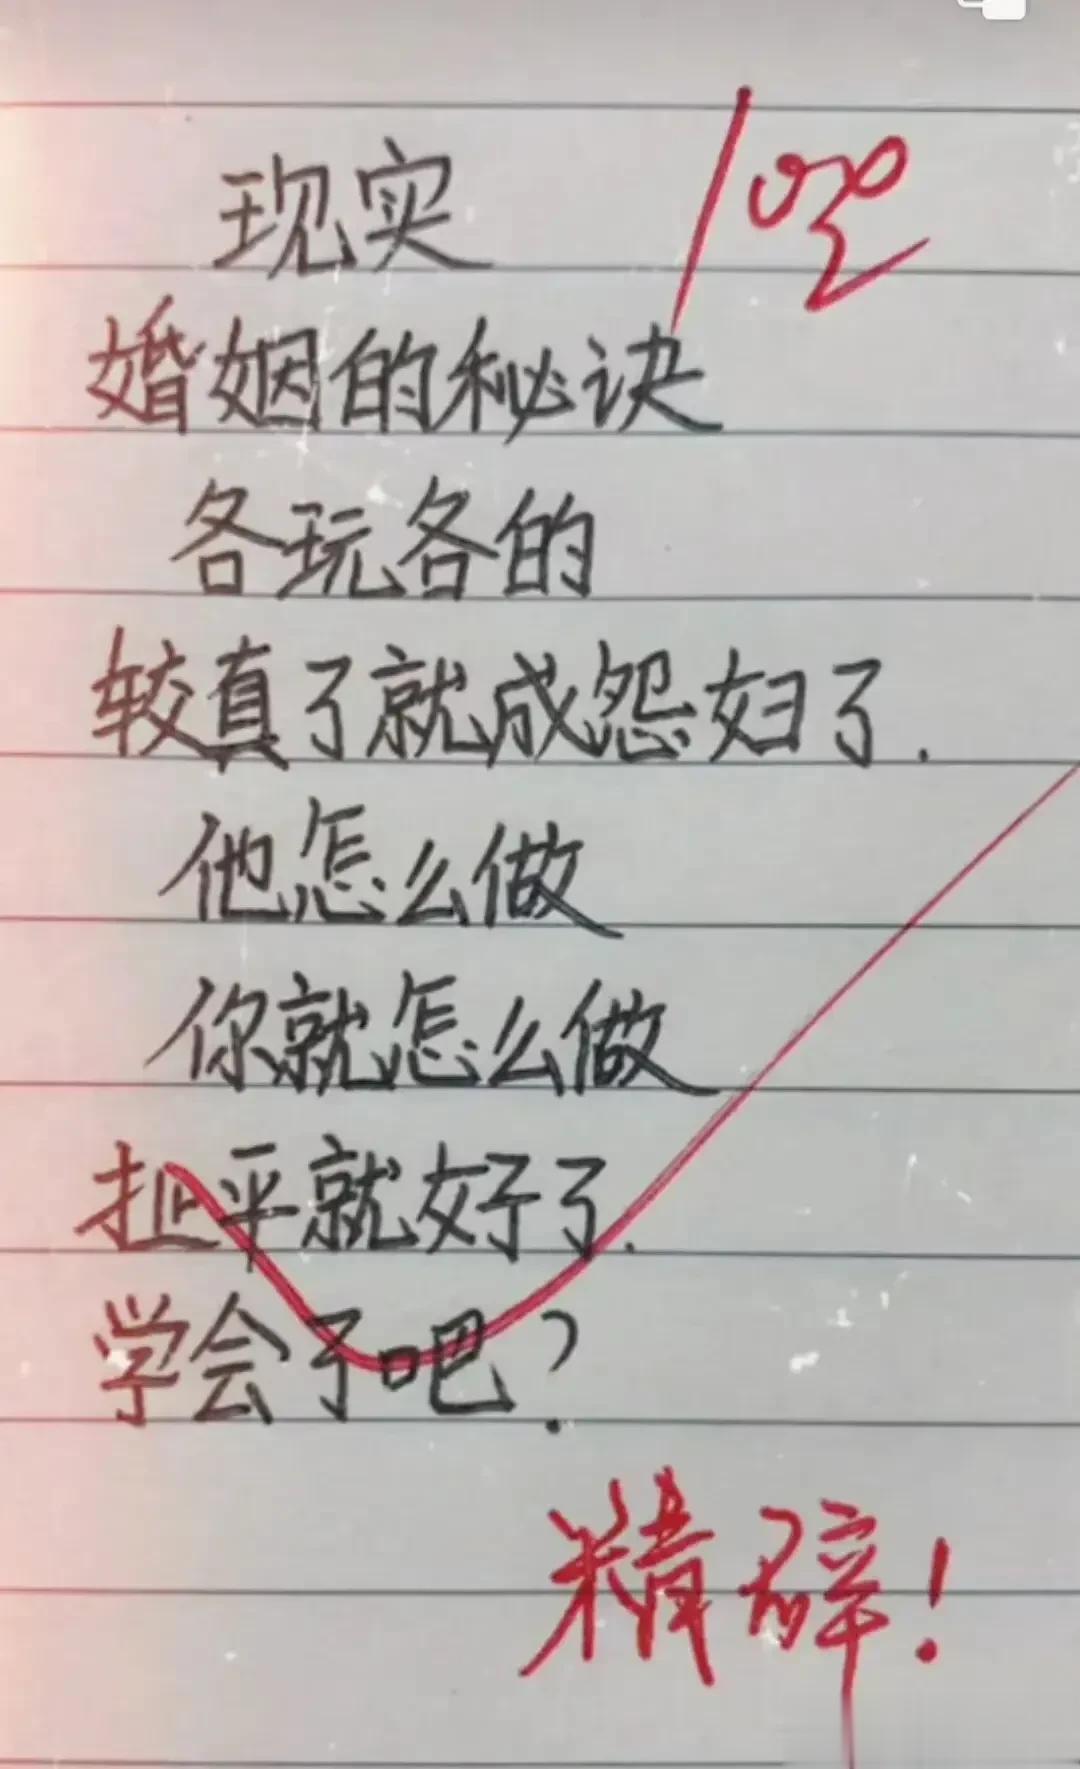 现实
100
婚姻的秘诀
各玩各的
较真了就成怨妇了.
他怎么做
你就怎么做
扯平就好了.
学会了吧?
精辟!